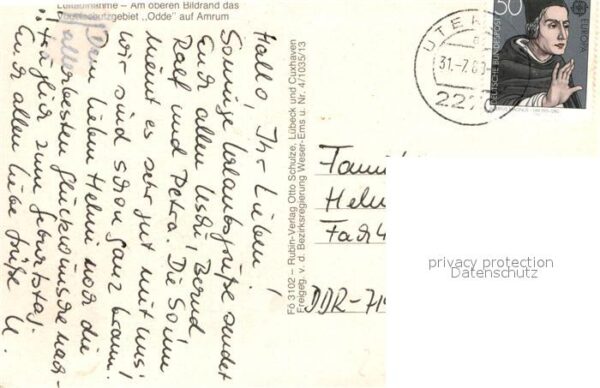 Luftaufnahme – Am oberen Bildrand das
Vogelschutzgebiet „Odde" auf Amrum
Hallo, Ihr Lieben!
Sonnige Urlaubsgrüße sendet
Euch allen Uschi, Bernd
Ralf und Petra. Die Sonne
meint es sehr gut mit uns!
wir sind schon ganz braun.
Dem lieben Helmi noch die
allerbesten Glückwünsche nach-
träglich zum Geburtstag.
Euch allen liebe Grüße U.
Fö 3102 – Rubin-Verlag Otto Schulze, Lübeck und Cuxhaven
Freigeg. v. d. Bezirksregierung Weser-Ems u. Nr. 4/1035/13
UTER
31.-7.80
22
50
EUROPA
DEUTSCHE BUNDESPOST
Fam
Helm
DDR-71
privacy protection
Datenschutz